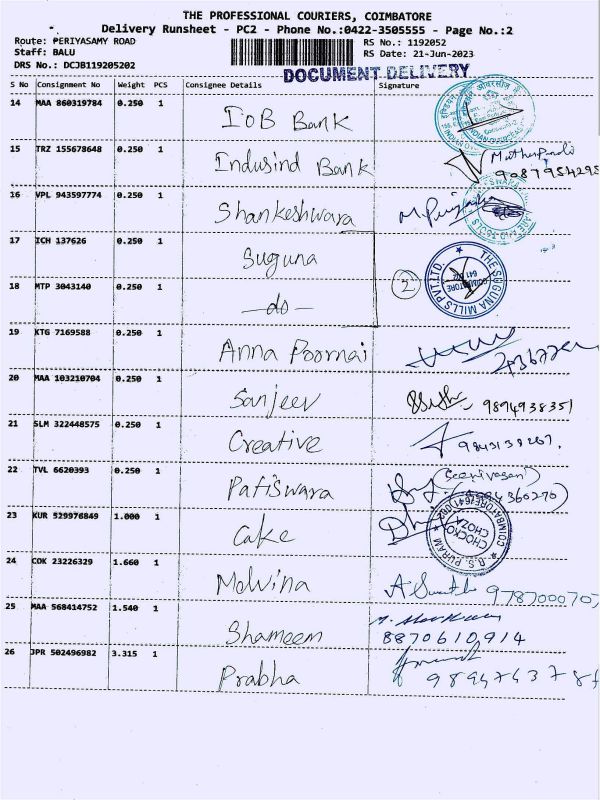 THE PROFESSIONAL COURIERS, COIMBATORE
Delivery Runsheet - PC2 - Phone No.:0422-3505555 - Page No.:2
Route: PERIYASAMY ROAD
RS No.: 1192052
Staff: BALU
RS Date: 21-Jun-2023
DRS No.: DCJB119205202
DOCUMENT DELIVERY
S No Consignment No Weight PCS Consignee Details Signature
14 MAA 860319784 0.250 1 IOB Bank
15 TRZ 155678648 0.250 1 Indusind Bank
9087954295
16 VPL 943597774 0.250 1 Shankeshwara
17 ICH 137626 0.250 1 Suguna
THE SUGUNA MILLS PVT.LTD.
COIMBATORE
641
2
18 MTP 3043140 0.250 1 -do-
19 KTG 7169588 0.250 1 Anna Poornai
20 MAA 103210704 0.250 1 Sanjeev
9894938351
21 SLM 322448575 0.250 1 Creative
9843139267.
22 TVL 6620393 0.250 1 Patiswara
23 KUR 529976849 1.000 1 Cake
CHOCKO
CHOZA
R.S. PURAM
24 COK 23226329 1.660 1 Melvina
25 MAA 568414752 1.540 1 Shameem
8870610914
26 JPR 502496982 3.315 1 Prabha